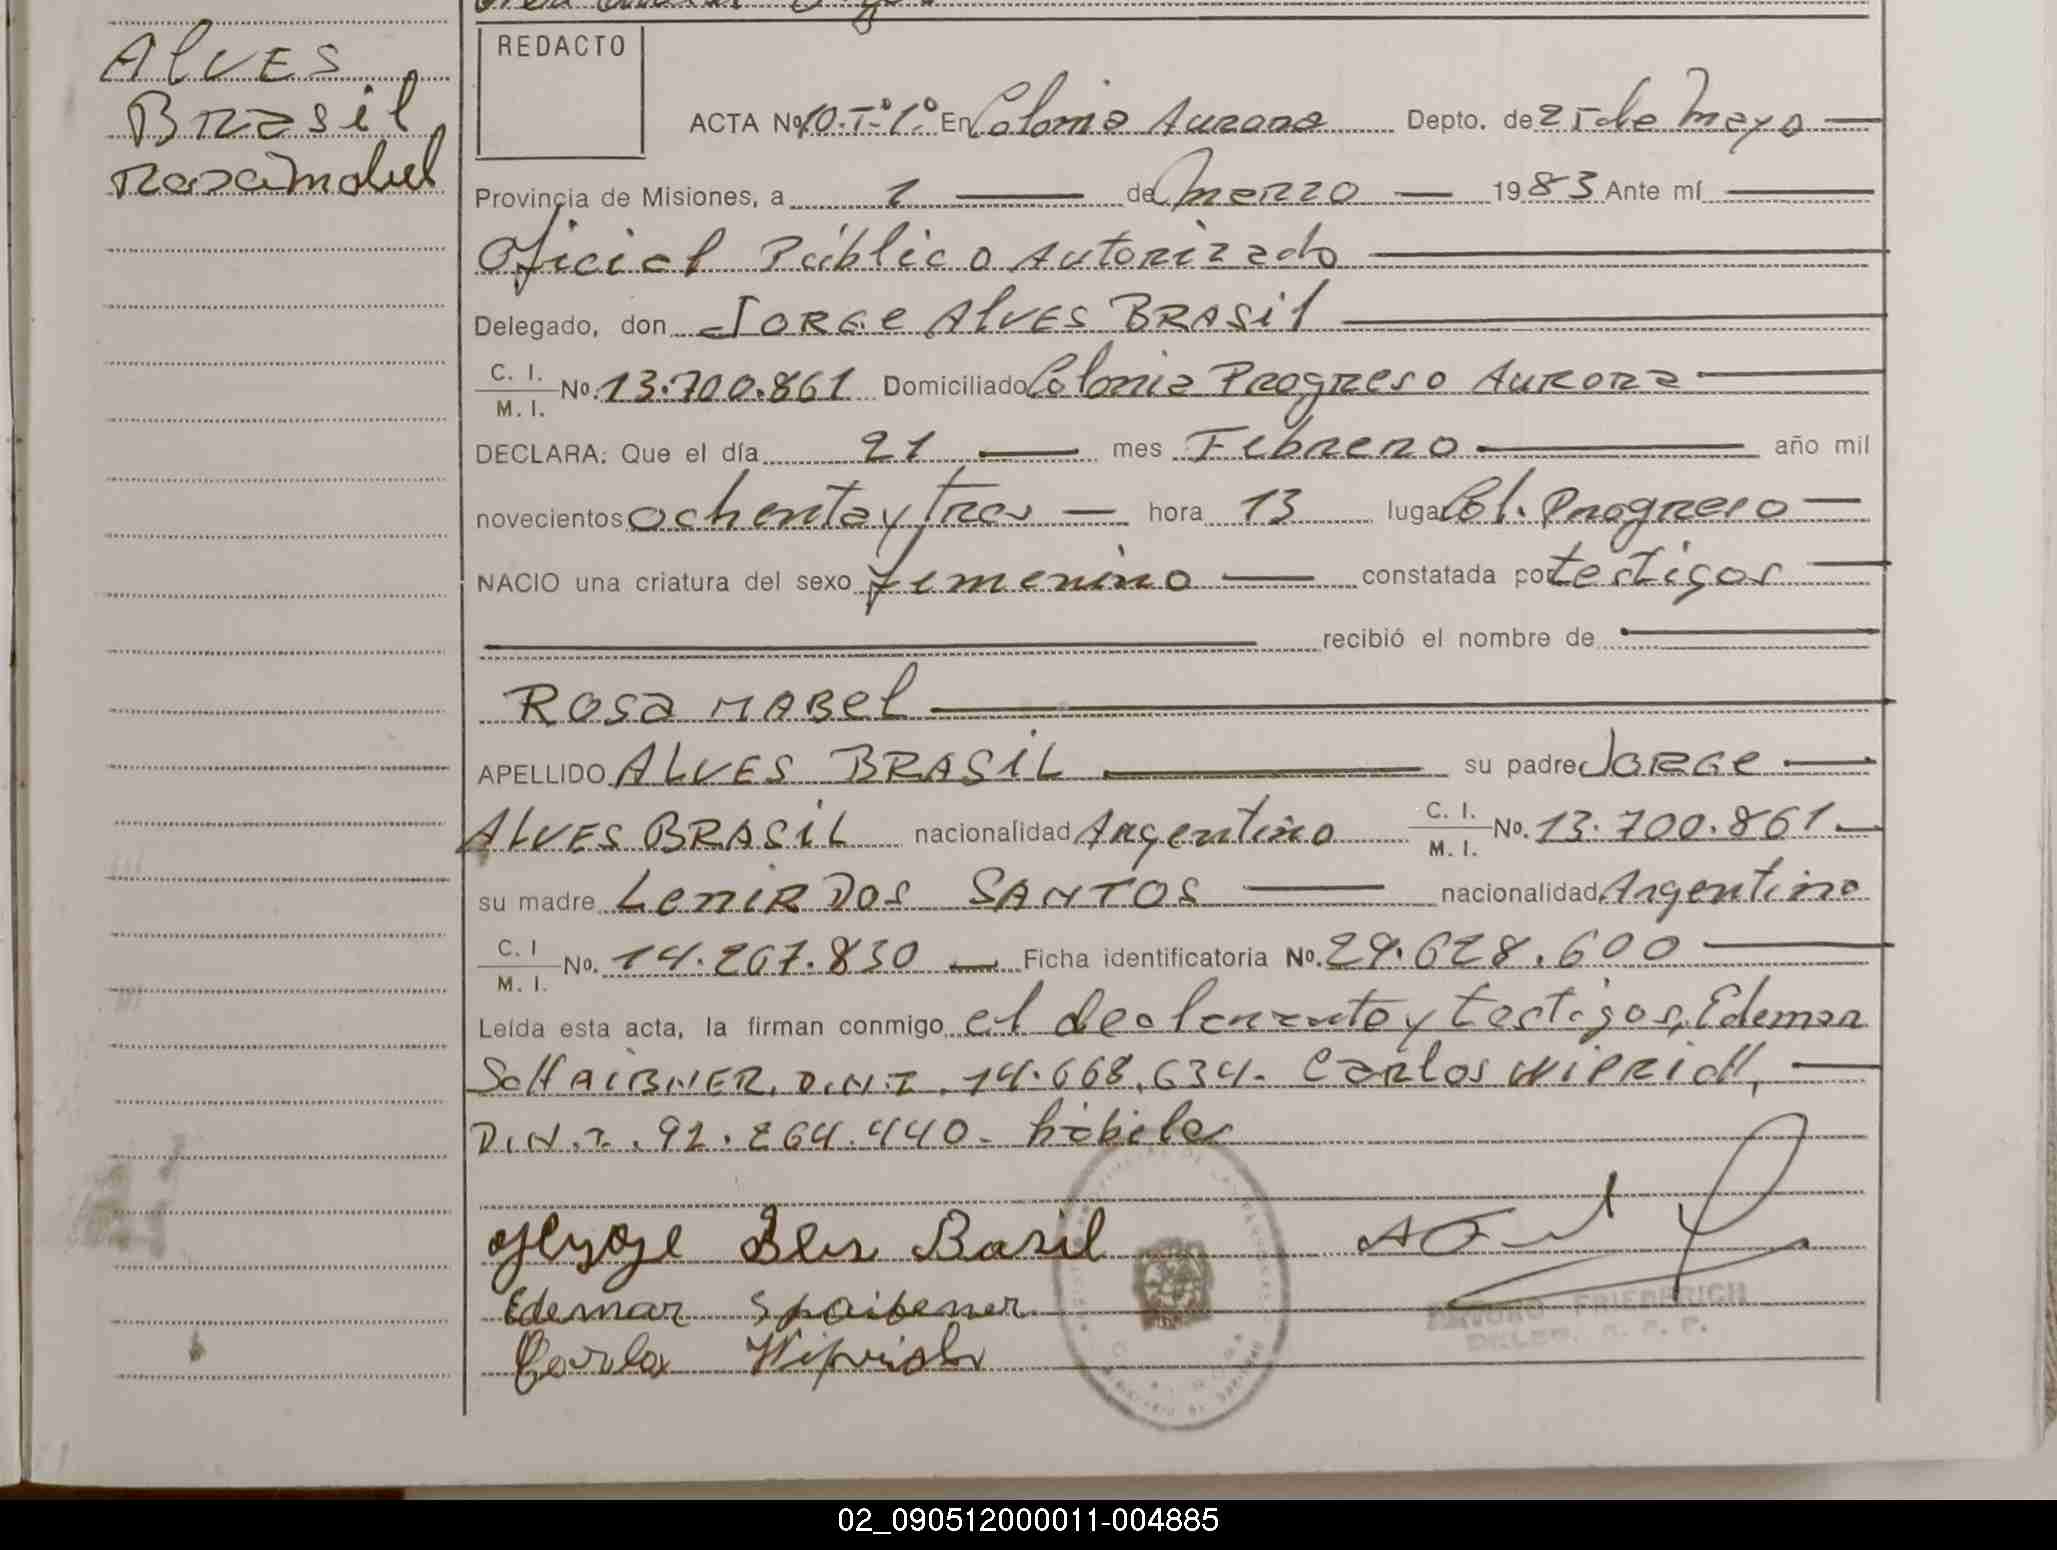 ALVES
Brasil
Rosa Mabel
REDACTO
ACTA Nº 10. Tº 1º En Colonia Aurora Depto. de 25 de Mayo
Provincia de Misiones, a 1 de Marzo 1983 Ante mí
Oficial Público Autorizado
Delegado, don JORGE ALVES BRASIL
C. I.
M. I. No. 13.700.861 Domiciliado Colonia Progreso Aurora
DECLARA: Que el día 21 mes Febrero año mil
novecientos ochenta y tres hora 13 lugar Col. Progreso
NACIO una criatura del sexo femenino constatada por testigos
recibió el nombre de
ROSA MABEL
APELLIDO ALVES BRASIL su padre JORGE
ALVES BRASIL nacionalidad Argentino C. I.
M. I. No. 13.700.861
su madre LENIR DOS SANTOS nacionalidad Argentina
C. I
M. I. No. 14.267.830 Ficha identificatoria No. 29.628.600
Leída esta acta, la firman conmigo el declarante y testigos, Edemar
SCHAIBNER, D.N.I. 14.668.634. Carlos WIPRICH,
D.N.I. 92.264.440. hábiles
Brasil
Edemar Spaibener
Carlos Wiprich
FRIEDERICH
02_090512000011-004885